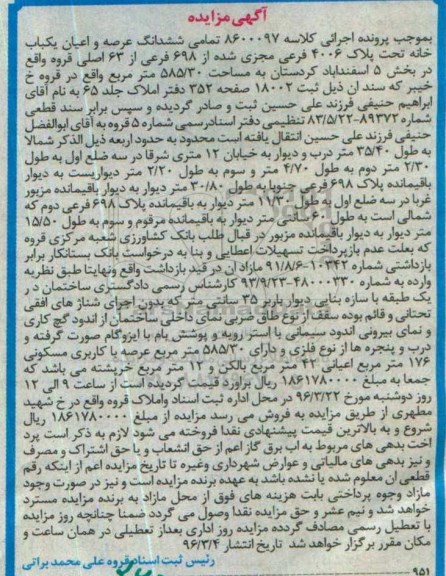 آگهی مزایده
بموجب پرونده اجرائی کلاسه ۸۶۰۰۰۹۷ تمامی ششدانگ عرصه و اعیان یکباب
خانه تحت پلاک ۴۰۰۶ فرعی مجزی شده از ۶۹۸ فرعی از ۶۳ اصلی قروه واقع
در بخش ۵ اسفنداباد کردستان به مساحت ۵۸۵/۳۰ متر مربع واقع در قروه خ
خیبر که سند ان ذیل ثبت ۱۸۰۰۲ صفحه ۳۵۲ دفتر املاک جلد ۶۵ به نام آقای
ابراهیم حنیفی فرزند علی حسین ثبت و صادر گردیده و سپس برابر سند قطعی
شماره ۸۹۳۷۲-۸۳/۵/۲۲ تنظیمی دفتر اسنادرسمی شماره ۵ قروه به آقای ابوالفضل
حنیفی فرزند علی حسین انتقال یافته است محدود به حدود اربعه ذیل الذکر شمالا
به طول ۳۵/۴۰ متر درب و دیوار به خیابان ۱۲ متری شرقا در سه ضلع اول به طول
۲/۳۰ متر دوم به طول ۴/۷۰ متر و سوم به طول ۲/۲۰ متر دیواریست به دیوار
باقیمانده پلاک ۶۹۸ فرعی جنوبا به طول ۳۰/۸۰ متر دیوار به دیوار باقیمانده مزبور
غربا در سه ضلع اول به طول ۱۱/۳۰ متر دیوار به باقیمانده پلاک ۶۹۸ فرعی دوم که
شمالی است به طول ۶۰ متر دیوار به باقیمانده مرقوم و سوم به طول ۱۵/۵۰
متر دیوار به دیوار باقیمانده مزبور در قبال طلب بانک کشاورزی شعبه مرکزی قروه
که بعلت عدم بازپرداخت تسهیلات اعطایی و بنا به درخواست بانک بستانکار برابر
بازداشتی شماره ۱۰۳۴۲-۹۱/۸/۶ مازاد ان در قید بازداشت واقع ونهایتا طبق نظریه
وارده به شماره ۴۸۰۰۰۳۳۰-۹۳/۹/۲۳ کارشناس رسمی دادگستری ساختمان در
یک طبقه با سازه بنایی دیوار باربر ۳۵ سانتی متر که بدون اجرای شناژ های افقی
تحتانی و قائم بوده سقف از نوع طاق ضربی نمای داخلی ساختمان از اندود گچ کاری
و نمای بیرونی اندود سیمانی با استر رویه و پوشش بام با ایزوگام صورت گرفته و
درب و پنجره ها از نوع فلزی و دارای ۵۸۵/۳۰ متر مربع عرصه با کاربری مسکونی
۱۷۶ متر مربع اعیانی ۴۲ متر مربع بالکن و ۱۲ متر مربع خرپشته می باشد که
جمعا به مبلغ ۱۸۶۱۷۸۰۰۰۰ ریال برآورد قیمت گردیده است از ساعت ۹ الی ۱۲
روز دوشنبه مورخ ۹۶/۳/۲۲ در محل اداره ثبت اسناد واملاک قروه واقع در خ شهید
مطهری از طریق مزایده به فروش می رسد مزایده از مبلغ ۱۸۶۱۷۸۰۰۰۰ ریال
شروع و به بالاترین قیمت پیشنهادی نقدا فروخته می شود لازم به ذکر است پرد
اخت بدهی های مربوط به اب برق گاز اعم از حق انشعاب و یا حق اشتراک و مصرف
و نیز بدهی های مالیاتی و عوارض شهرداری وغیره تا تاریخ مزایده اعم از اینکه رقم
قطعی ان معلوم شده یا نشده باشد به عهده برنده مزایده است و نیز در صورت وجود
مازاد وجوه پرداختی بابت هزینه های فوق از محل مازاد به برنده مزایده مسترد
خواهد شد و نیم عشر و حق مزایده نقدا وصول می گردد ضمنا چنانچه روز مزایده
با تعطیل رسمی مصادف گردده مزایده روز اداری بعداز تعطیلی در همان ساعت و
مکان مقرر برگزار خواهد شد تاریخ انتشار ۹۶/۳/۴
رئیس ثبت اسناد قروه علی محمد براتی
۹۵۱